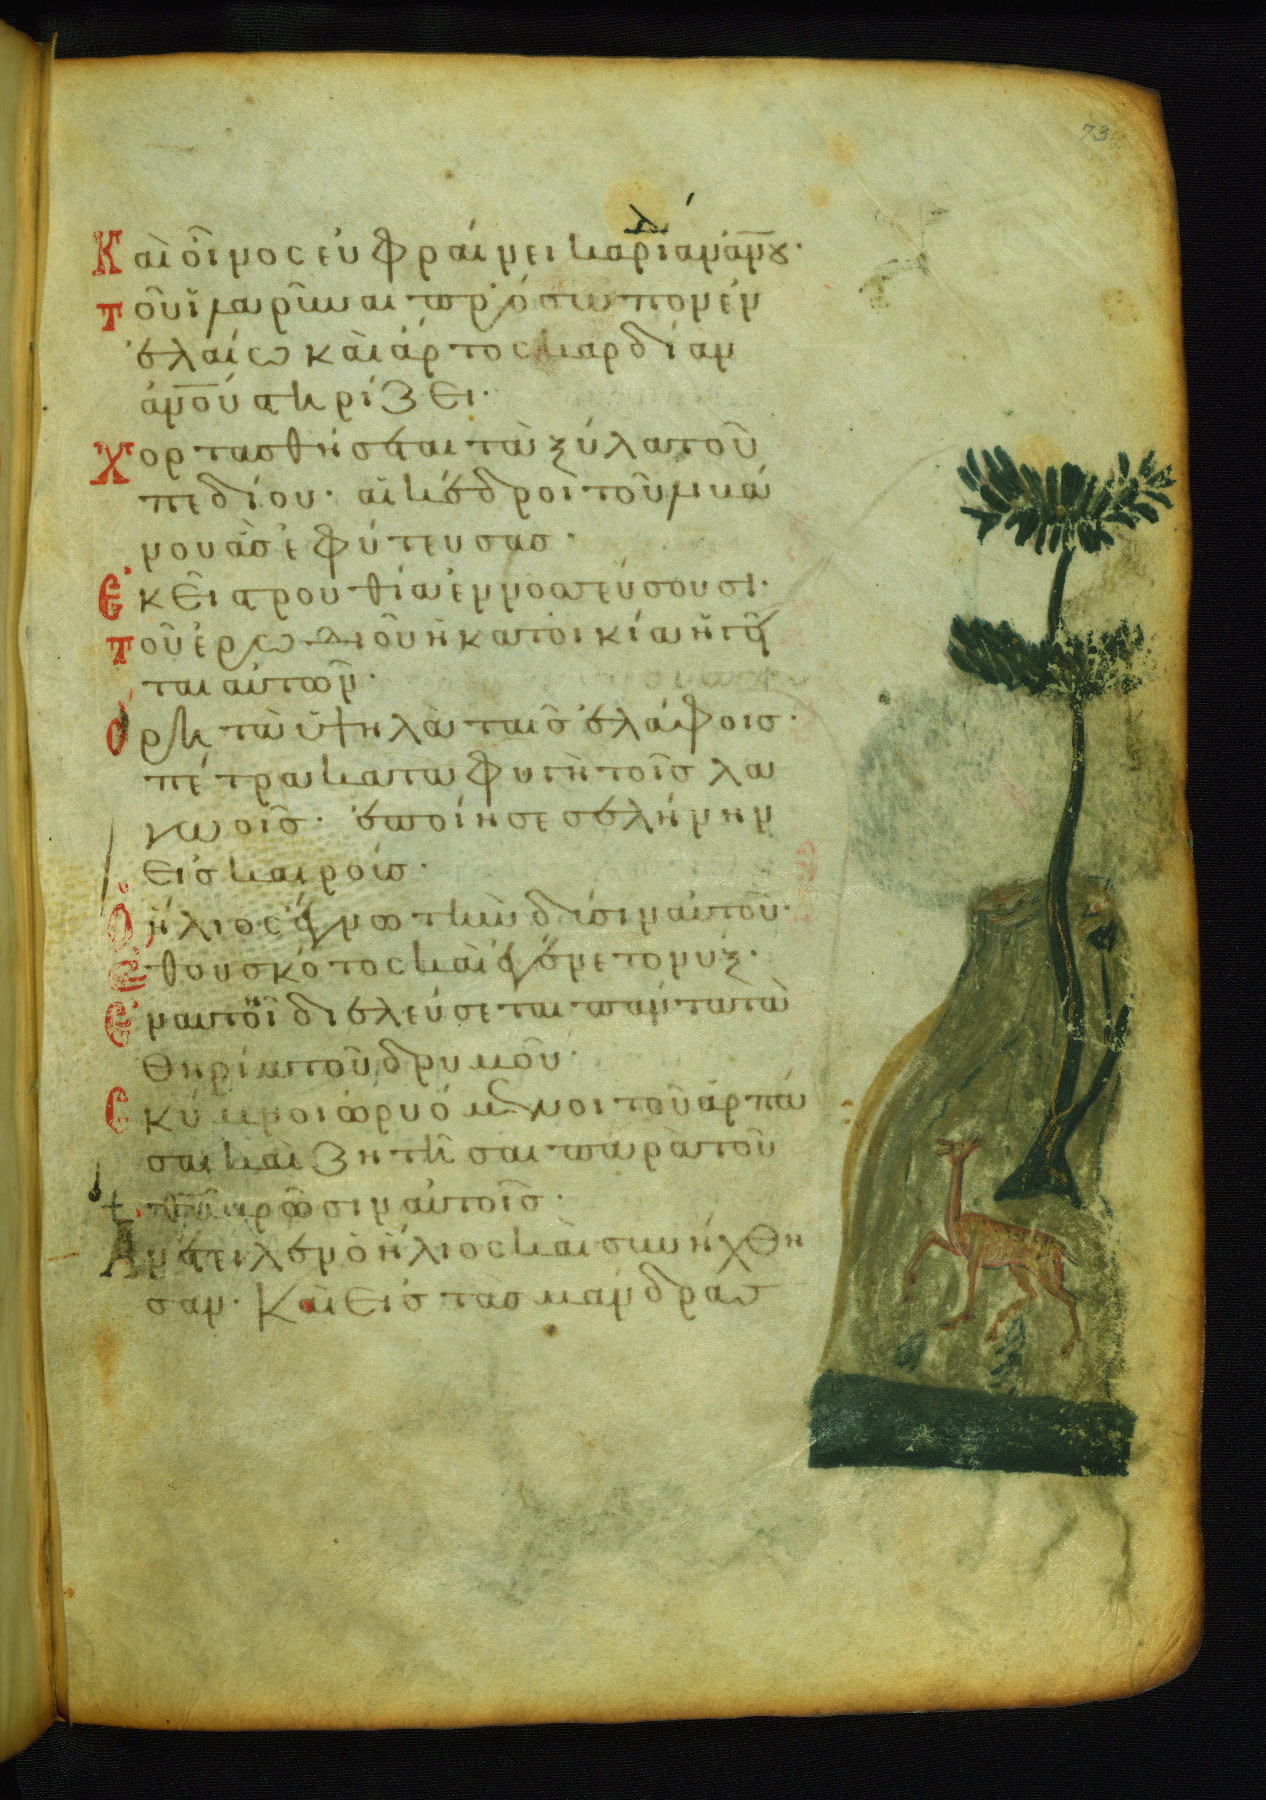 73
Καὶ οἶνος εὐφραίνει καρδίαν ἀνου·
Τοῦ ἱλαρῦναι πρόσωπον ἐν
ἐλαίω καὶ ἄρτος καρδίαν
ἀνου στηρίζει·
Χορτασθήσεται τὰ ξύλα τοῦ
πεδίου· αἱ κέδροι τοῦ λιβά
νου ἃς ἐφύτευσας·
Ἐκεῖ στρουθία ἐννοσσεύσουσι·
Τοῦ ἐρωδιοῦ ἡ κατοικία ἡγεῖ
ται αὐτῶν·
Ὄρη τὰ ὑψηλὰ ταῖς ἐλάφοις·
πέτρα καταφυγὴ τοῖς λα
γωοῖς· ἐποίησε σελήνην
εἰς καιρούς·
Ὁ ἥλιος ἔγνω τὴν δύσιν αὐτοῦ·
Ἔθου σκότος καὶ ἐγένετο νύξ·
Ἐν αὐτῆ διελεύσεται πάντα τὰ
θηρία τοῦ δρυμοῦ·
Σκύμνοι ὠρυόμενοι τοῦ ἁρπά
σαι καὶ ζητῆσαι παρὰ τοῦ
θυ βρῶσιν αὐτοῖς·
Ἀνέτειλεν ὁ ἥλιος καὶ συνήχθη
σαν· Καὶ εἰς τὰς μάνδρας